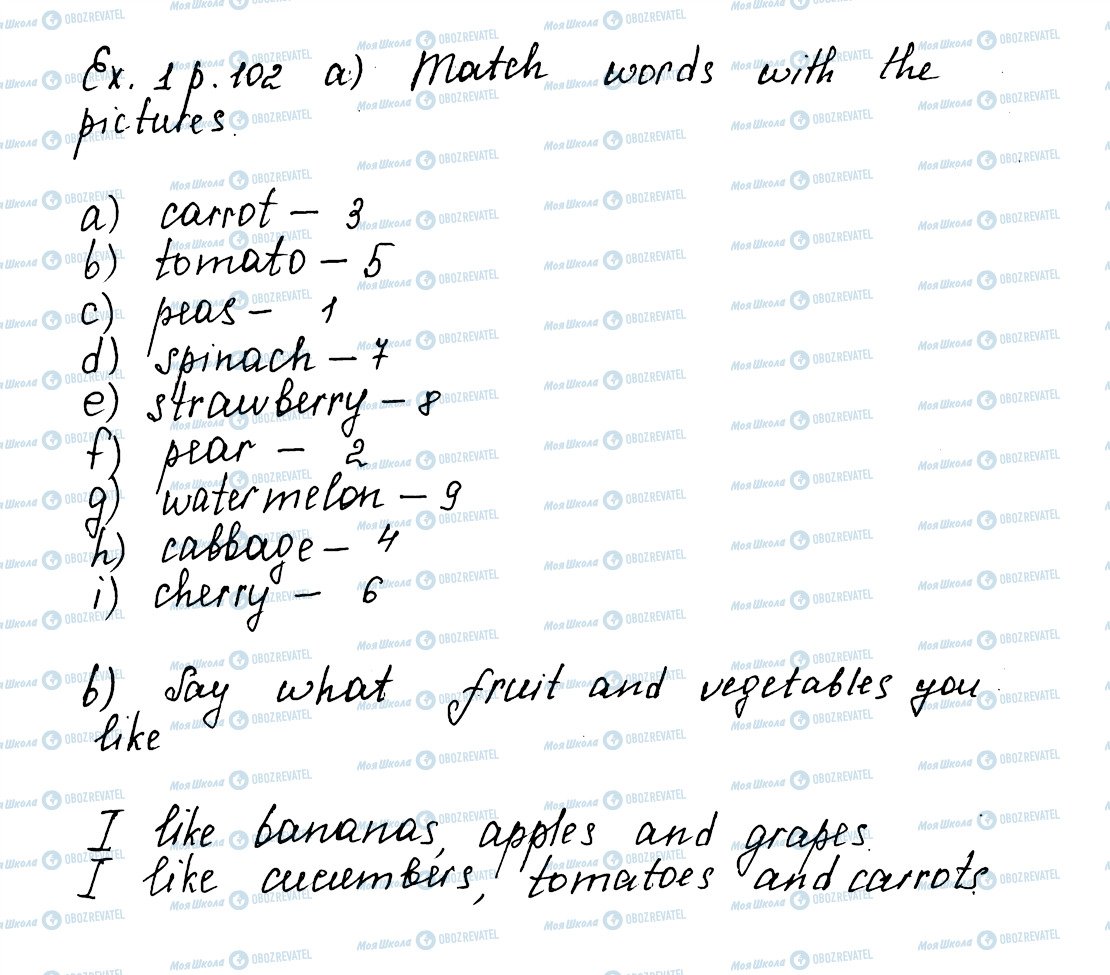 Ex. 1 p. 102 a) Match words with the
pictures.
a) carrot – 3
b) tomato – 5
c) peas – 1
d) spinach – 7
e) strawberry – 8
f) pear – 2
g) watermelon – 9
h) cabbage – 4
i) cherry – 6
b) Say what fruit and vegetables you
like
I like bananas, apples and grapes.
I like cucumbers, tomatoes and carrots.